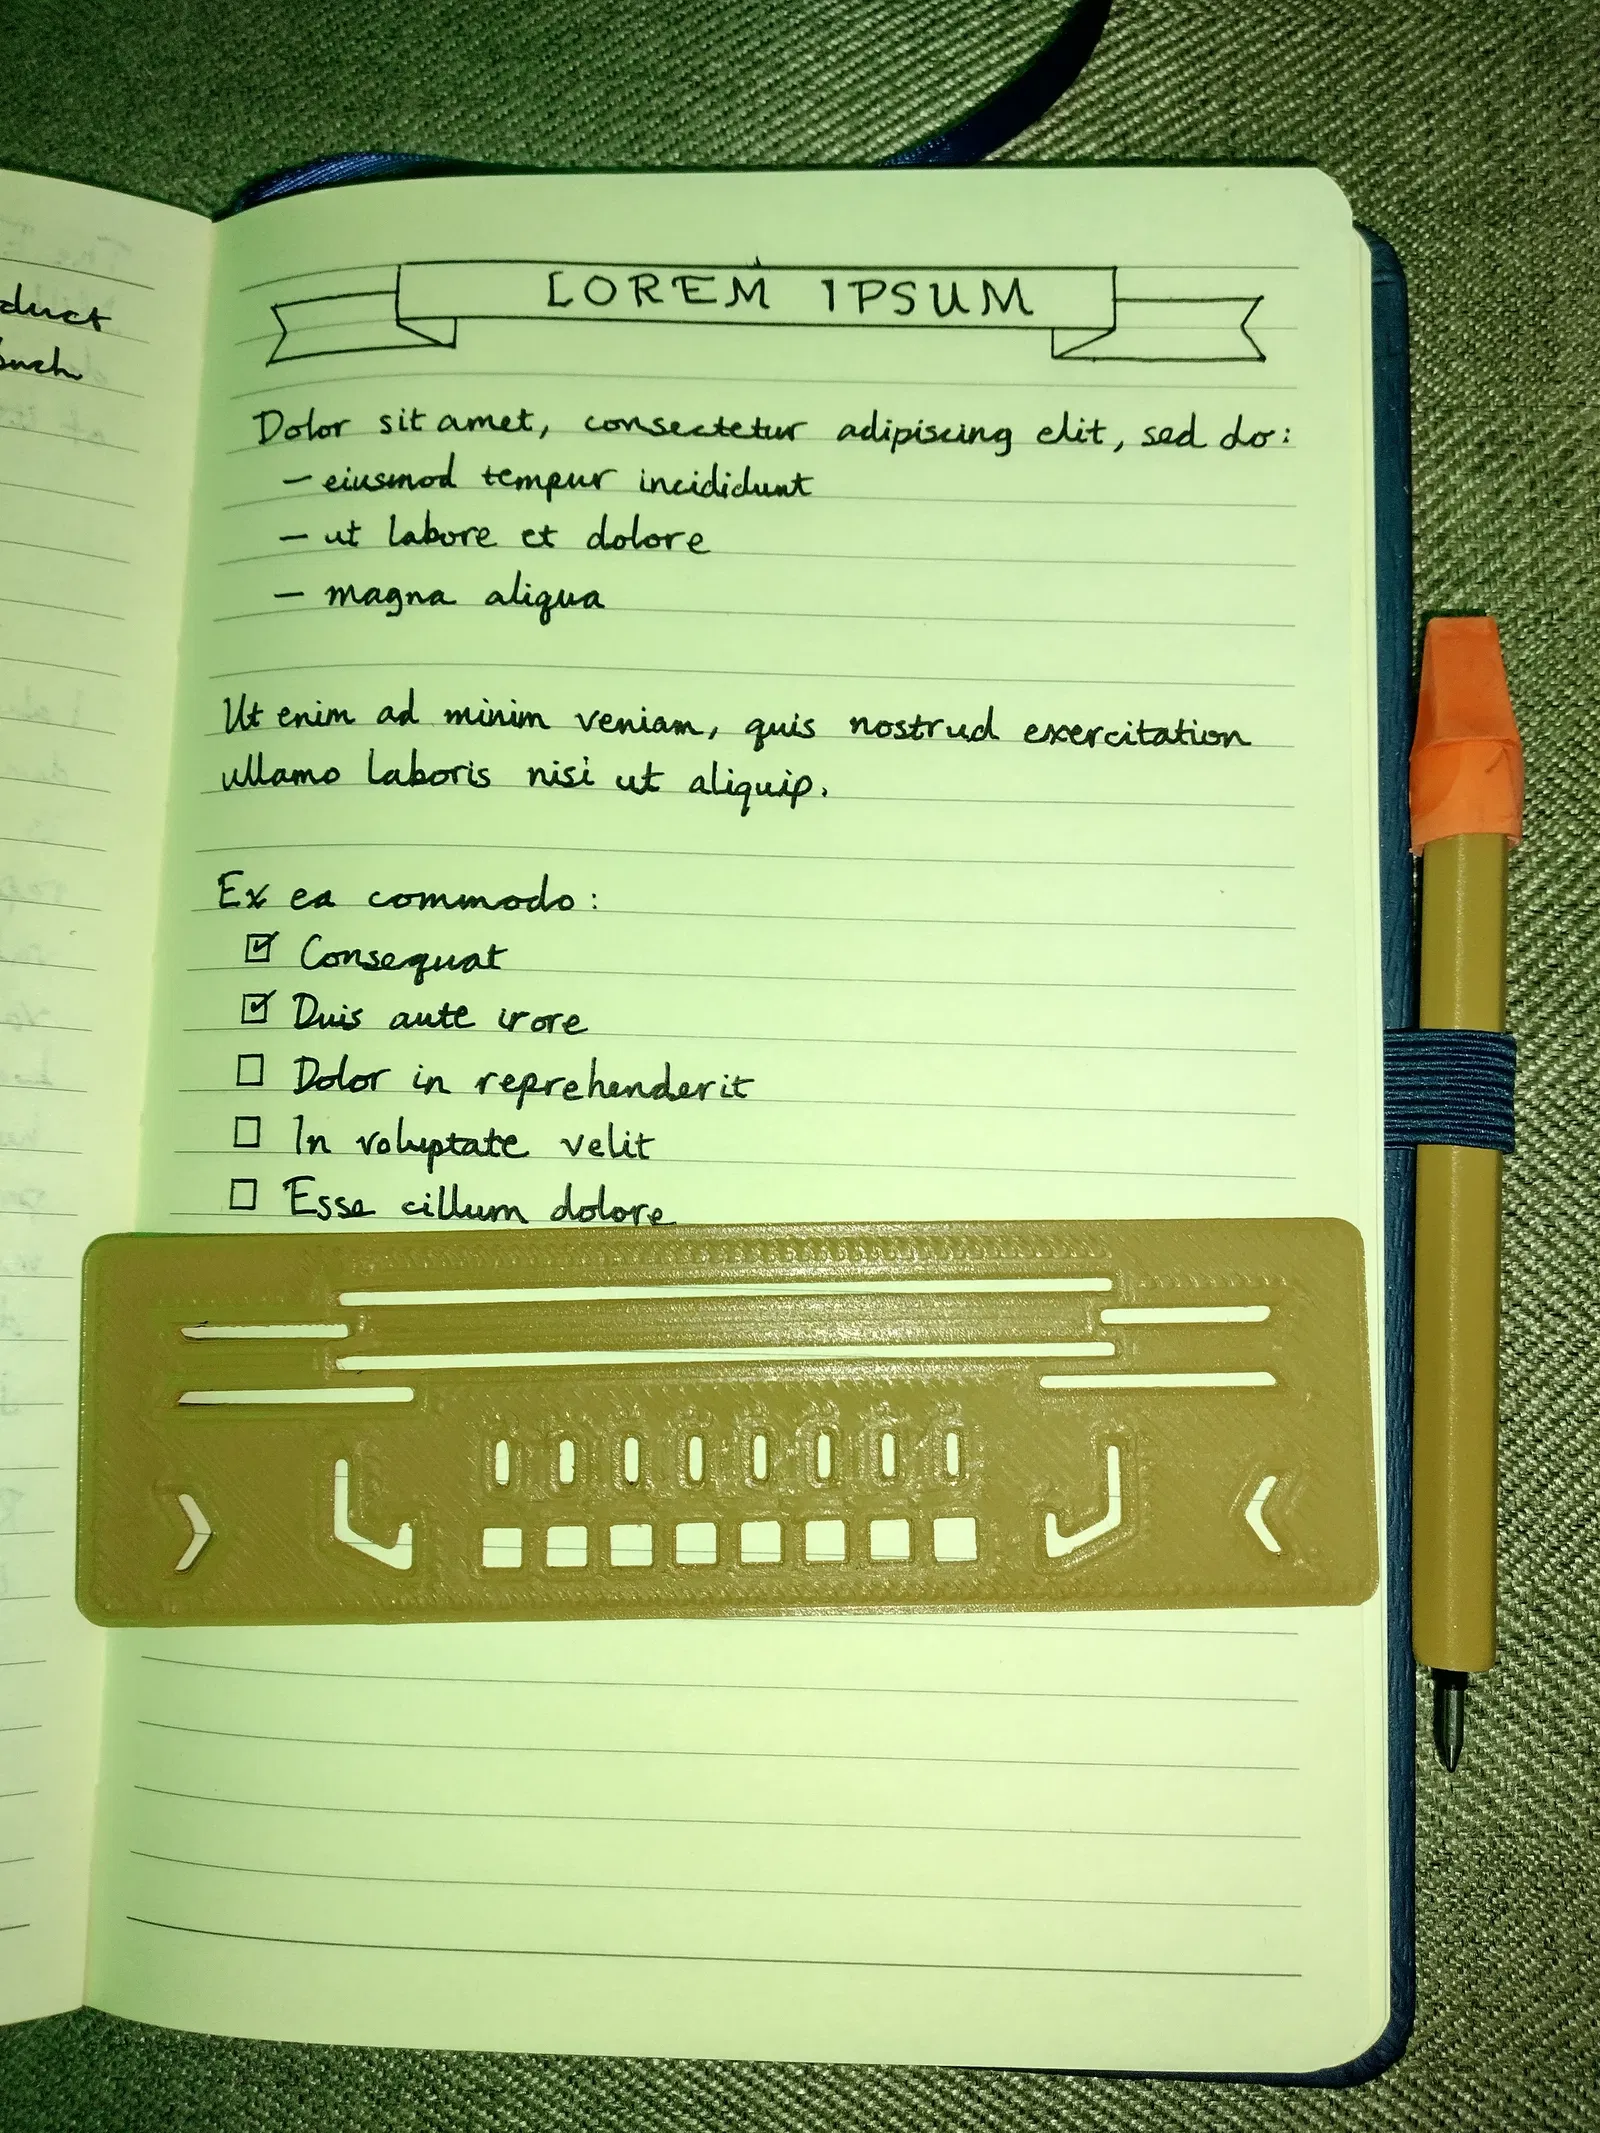 duct
LOREM IPSUM
Dolor sit amet, consectetur adipiscing elit, sed do:
– eiusmod tempur incididunt
– ut labore et dolore
– magna aliqua
Ut enim ad minim veniam, quis nostrud exercitation
ullamo laboris nisi ut aliquip.
Ex ea commodo:
☑ Consequat
☑ Duis aute irore
☐ Dolor in reprehenderit
☐ In voluptate velit
☐ Esse cillum dolore